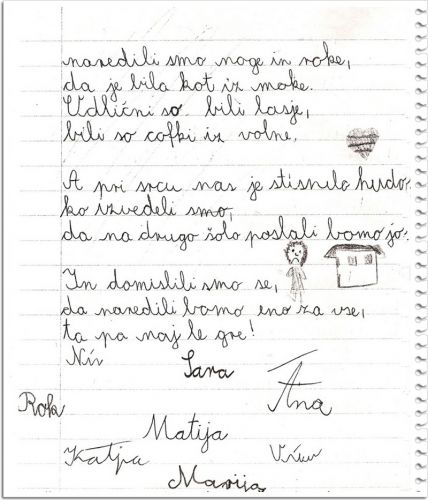 naredili smo noge in roke,
da je bila kot iz moke.
Odlični so bili lasje,
bili so cofki iz volne.
A pri srcu nas je stisnilo hudo,
ko izvedeli smo,
da na drugo šolo poslali bomo jo.
In domislili smo se,
da naredili bomo eno za vse,
ta pa naj le gre!
Sara
Ana
Rok
Matija
Katja
Marija